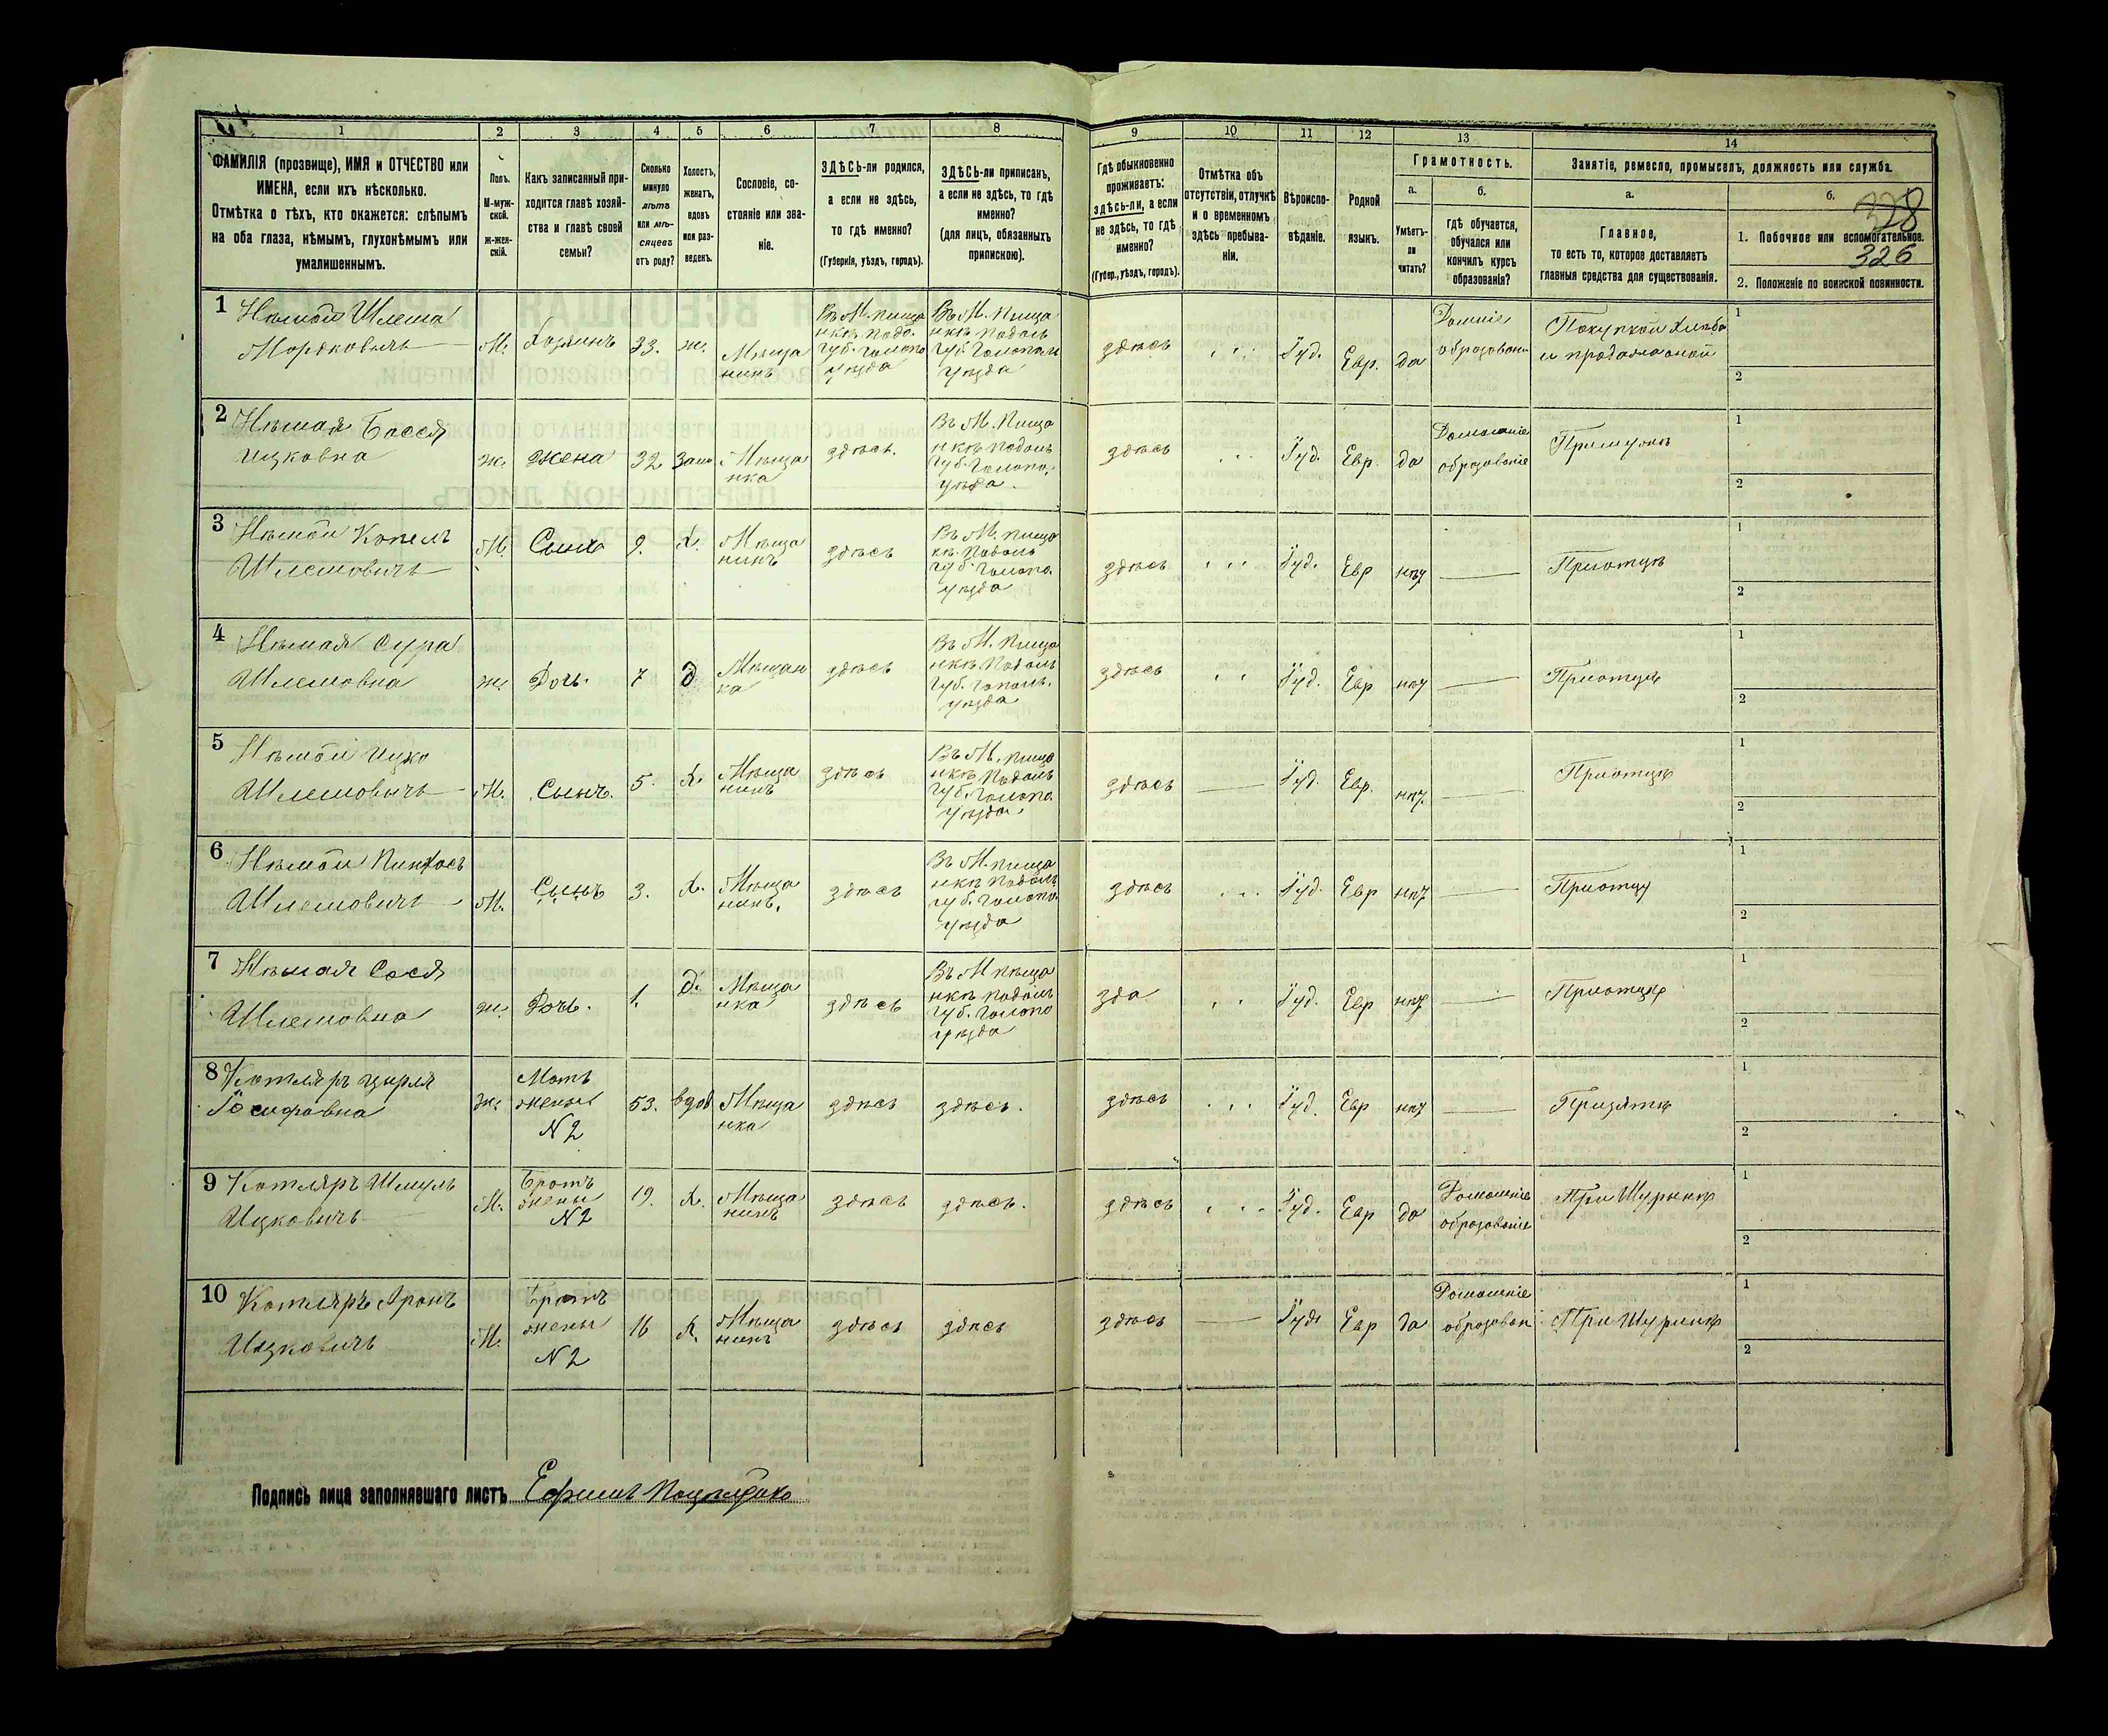 1 2 3 4 5 6 7 8 9 10 11 12 13 14
ФАМИЛІЯ (прозвище), ИМЯ и ОТЧЕСТВО или
ИМЕНА, если ихъ нѣсколько.
Отмѣтка о тѣхъ, кто окажется: слѣпымъ
на оба глаза, нѣмымъ, глухонѣмымъ или
умалишеннымъ.
Полъ.
М-муж-
ской.
Ж-жен-
скій.
Какъ записанный при-
ходится главѣ хозяй-
ства и главѣ своей
семьи?
Сколько
минуло
лѣтъ
или мѣ-
сяцевъ
отъ роду?
Холостъ,
женатъ,
вдовъ
или раз-
веденъ.
Сословіе, со-
стояніе или зва-
ніе.
ЗДѢСЬ-ли родился,
а если не здѣсь,
то гдѣ именно?
(Губернія, уѣздъ, городъ).
ЗДѢСЬ-ли приписанъ,
а если не здѣсь, то гдѣ
именно?
(для лицъ, обязанныхъ
припискою).
Гдѣ обыкновенно
проживаетъ:
здѣсь-ли, а если
не здѣсь, то гдѣ
именно?
(Губер., уѣздъ, городъ).
Отмѣтка объ
отсутствіи, отлучкѣ
и о временномъ
здѣсь пребыва-
ніи.
Вѣроиспо-
вѣданіе.
Родной
языкъ.
Грамотность.
а.
Умѣетъ-
ли
читать?
б.
Гдѣ обучается,
обучался или
кончилъ курсъ
образованія?
Занятіе, ремесло, промыселъ, должность или служба.
а.
Главное,
то есть то, которое доставляетъ
главныя средства для существованія.
б.
328
1. Побочное или вспомогательное.
326
2. Положеніе по воинской повинности.
1 Нѣмой Шлема
Мордковичъ
М. Хозяинъ 33. ж. Мѣща
нинъ
Въ М. Пища
нкѣ Подо.
губ. Гайсино
уѣзда
Въ М. Пища
нкѣ Подоль
губ.
уѣзда
здѣсь Іуд. Евр. да
образован
Покупкой хлѣба
и продажаной
1
2
2 Нѣмая Бася
Ицковна
ж. жена 32 зам. Мѣща
нка
здѣсь.
Въ М. Пища
нкѣ Подоль
губ.
уѣзда.
здѣсь Іуд. Евр. да
Домашніе
образованіе
При мужѣ
1
2
3 Нѣмой Копель
Шлемовичъ
М. Сынъ 9. Х. Мѣща
нинъ
здѣсь
Въ М. Пища
кѣ. Подоль
губ.
уѣзда
здѣсь Іуд. Евр нѣт
При отцѣ
1
2
4 Нѣмая Сура
Шлемовна
ж. Дочь. 7 д Мѣщан
ка
здѣсь
Въ М. Пища
нкѣ Подоль
губ.
уѣзда
здѣсь Іуд. Евр нѣт
При отцѣ
1
2
5 Нѣмой Ицко
Шлемовичъ
М. Сынъ. 5. Х. Мѣща
нинъ
здѣсь
Въ М. Пища
нкѣ Подоль
губ.
уѣзда
здѣсь Іуд. Евр. нѣт.
При отцѣ
1
2
6 Нѣмой Пинхось
Шлемовичъ
М. Сынъ 3. Х. Мѣща
нинъ.
здѣсь
Въ М. Пища
нкѣ Подоль
губ.
уѣзда
здѣсь Іуд. Евр нѣт
При отцу
1
2
7 Нѣмая Сося
Шлемовна
ж. Дочь. 1. д. Мѣща
нка
здѣсь
Въ М Пища
нкѣ Подоль
губ.
уѣзда
зда Іуд. Евр нѣт
При отцѣ
1
2
8 Котляръ Цирля
Іосифовна
ж. Мать
жены
N 2
53. вдов Мѣща
нка
здѣсь здѣсь.
здѣсь Іуд. Евр нѣт
При зятѣ
1
2
9 Котляръ Шмуль
Ицковичъ
М. Братъ
жены
N 2
19. Х. Мѣща
нинъ
здѣсь здѣсь.
здѣсь Іуд. Евр да
Домашніе
образованіе
При Шуринѣ
1
2
10 Котляръ Аронъ
Ицковичъ
М. Братъ
жены
N 2
16 Х. Мѣща
нинъ
здѣсь здѣсь
здѣсь Іуд Евр да
Домашніе
образован
При Шуринѣ
1
2
Подпись лица заполнявшаго листъ Ефимъ